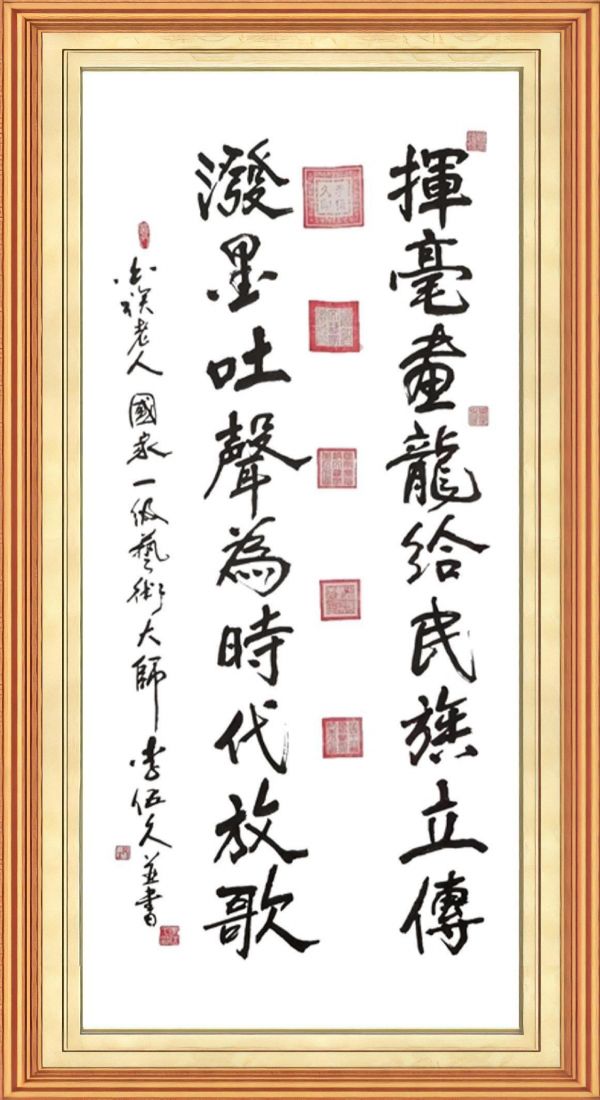 揮毫畫龍給民族立傳
潑墨吐聲為時代放歌
老人 國家一級藝術大師 李伍久並書